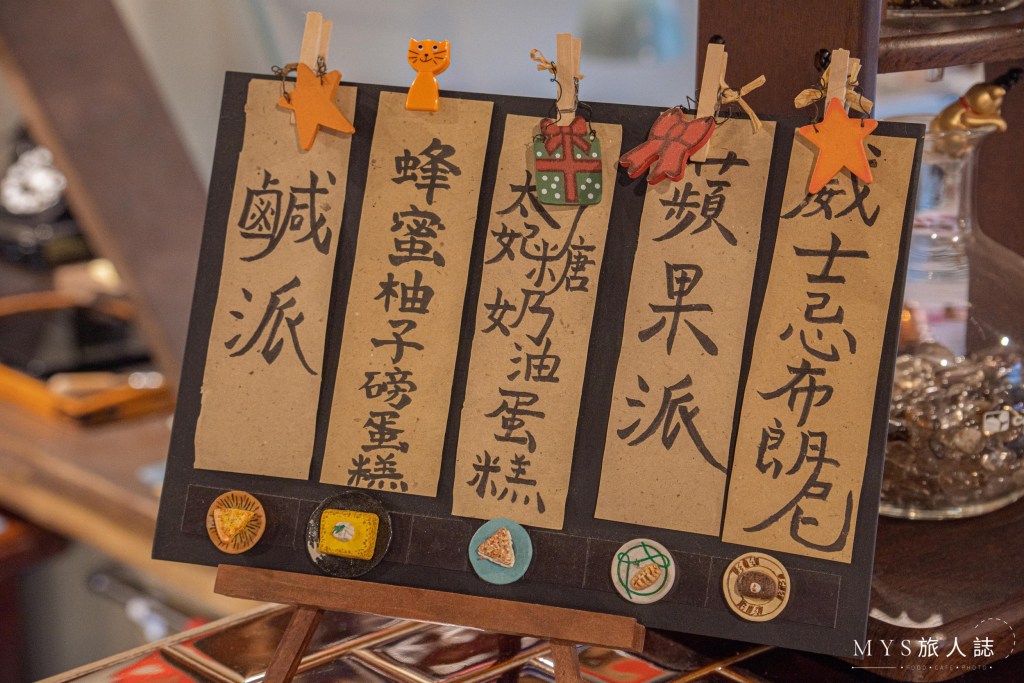 威士忌布朗尼
蘋果派
太妃糖奶油蛋糕
蜂蜜柚子磅蛋糕
鹹派
MYS旅人誌
FOOD•CAFE•PHOTO